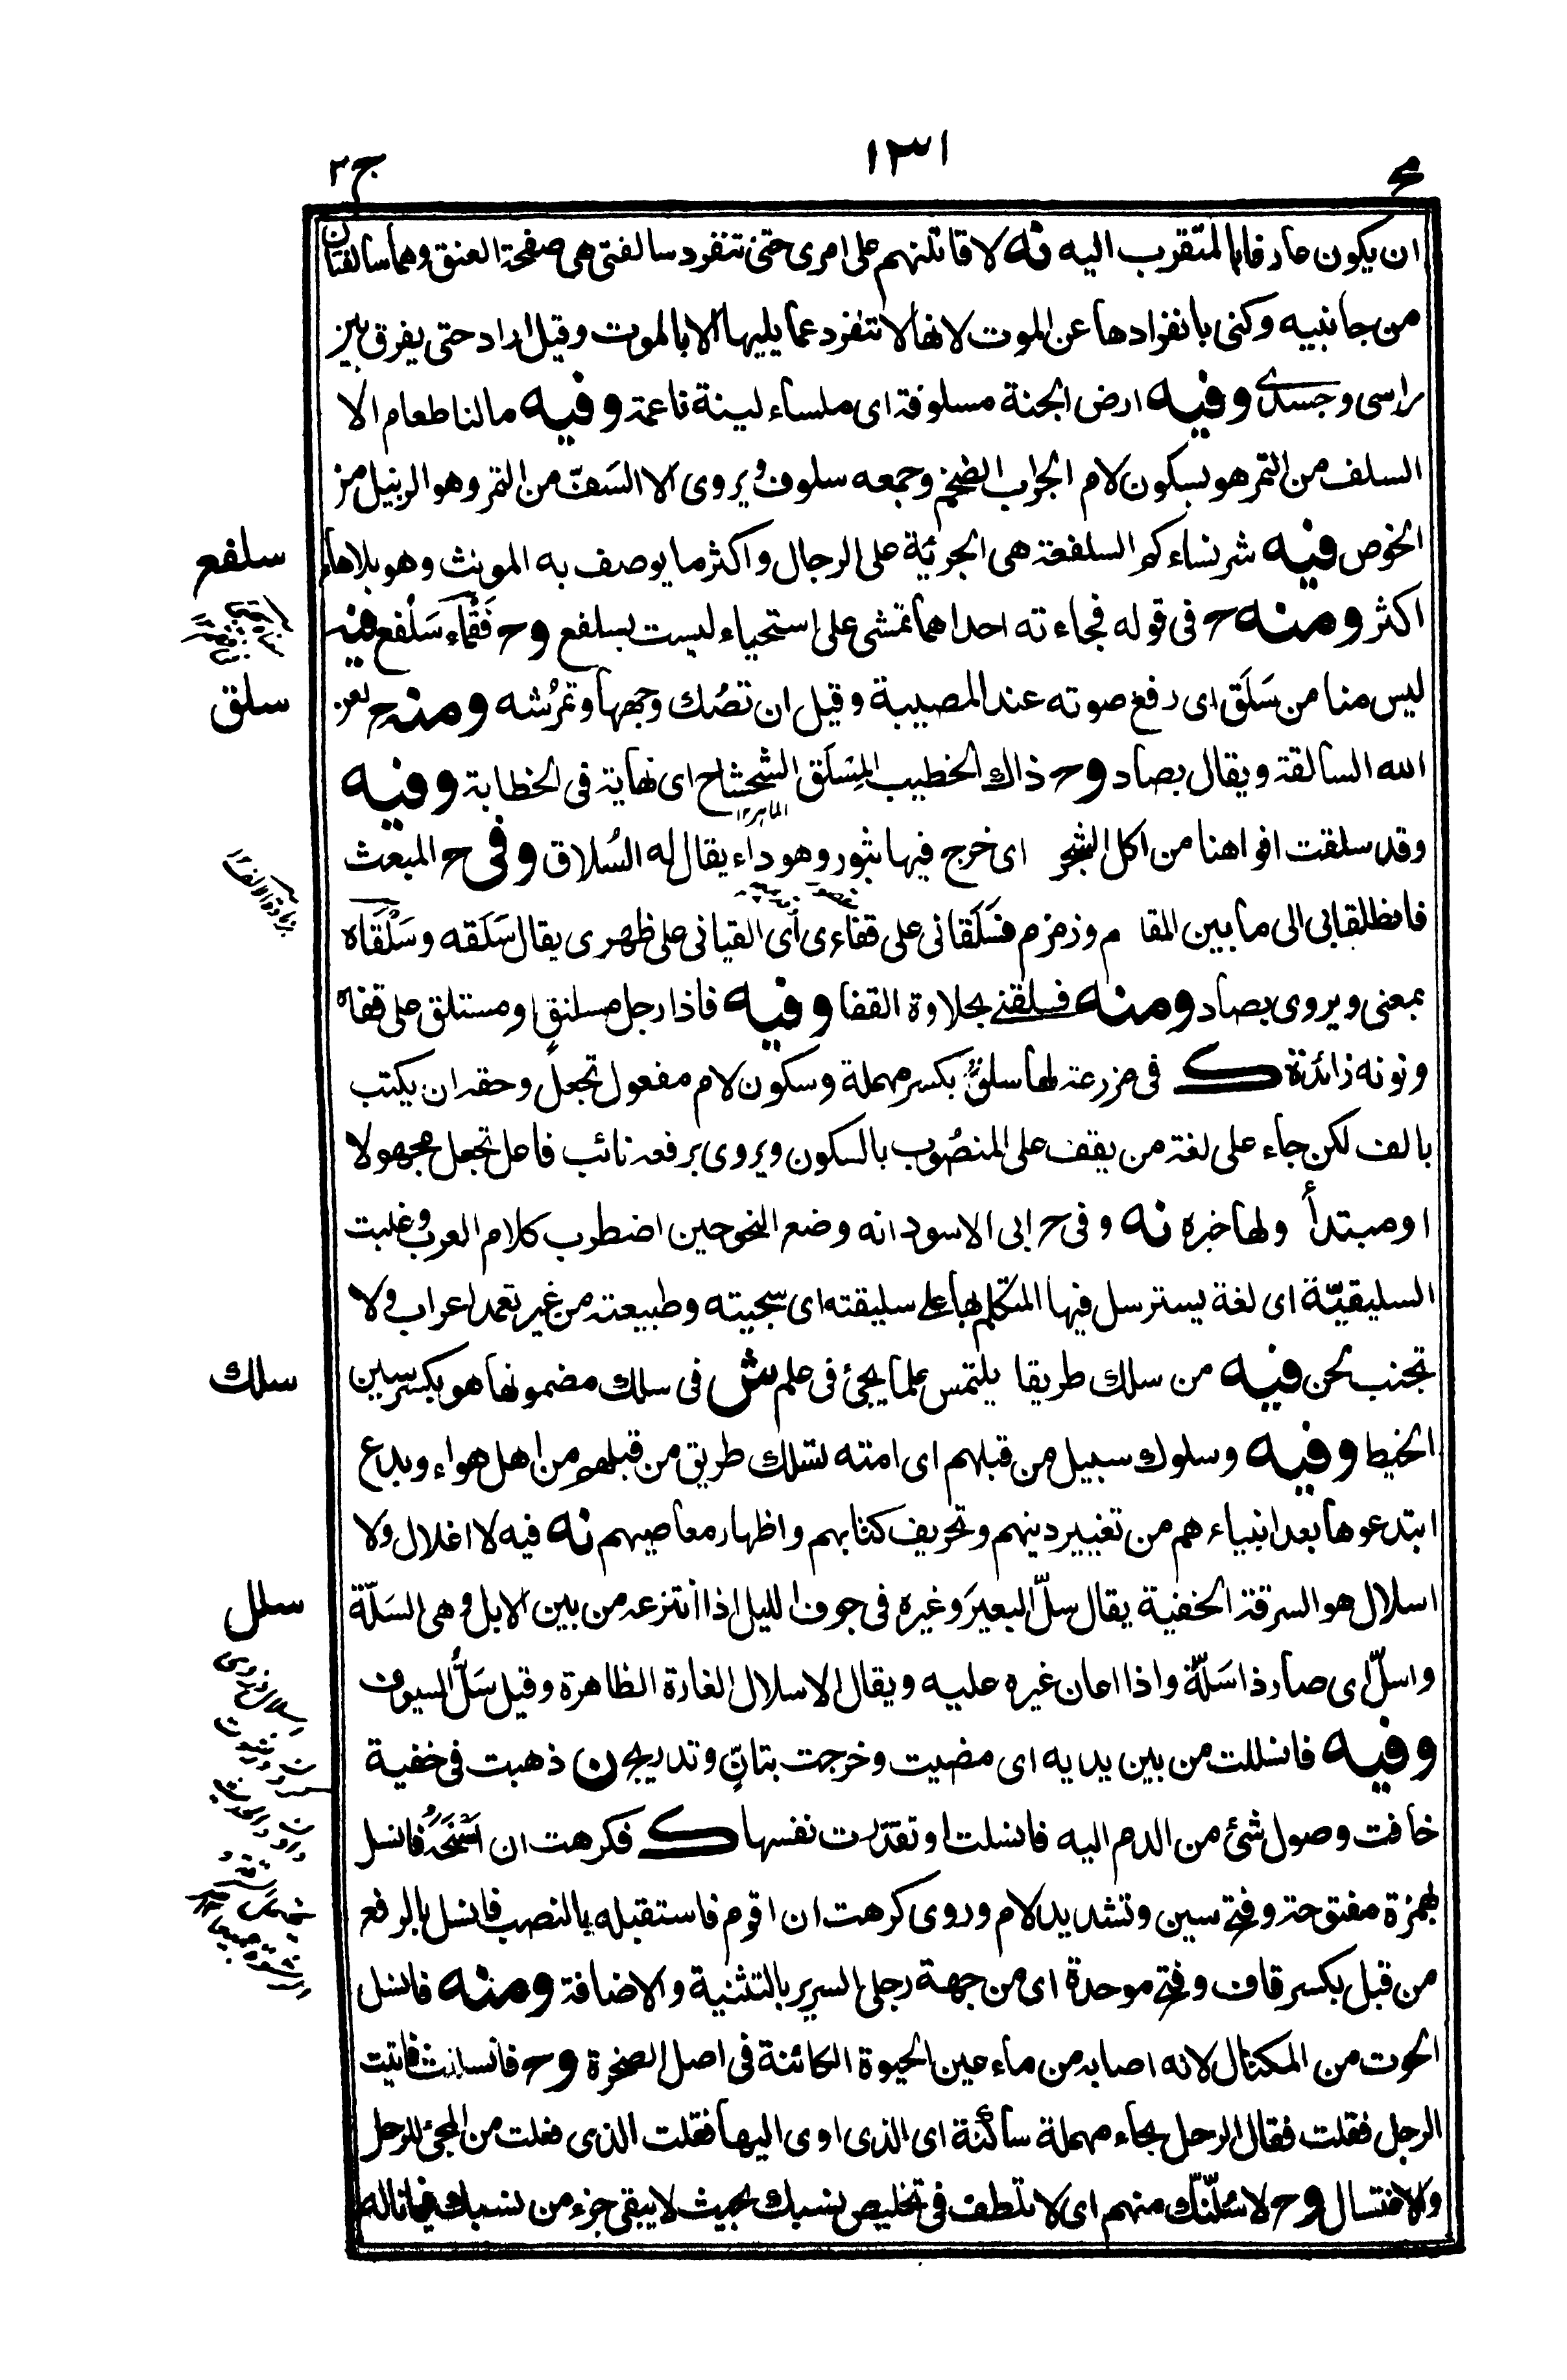 ١٣١
ج٢
ان يكون عارفا بالمتقرب اليه نه لا قاتلنهم على امرى حتى تنفرد سالفتى هى صفحة العنق وهما سالفتان
من جانبيه وكنى بانفرادها عن الموت لانها لا تنفرد عما يليها الا بالموت وقيل اراد حتى يفرق بين
راسى وجسدى وفيه ارض الجنة مسلوفة اى ملساء لينة ناعمة وفيه مالنا طعام الا
السلف من التمر هو بسكون لام الجراب الضخم وجمعه سلوف ويروى الا السَفّ من التمر وهو الزبيل من
الخوص فيه شر نساءكم السلفعة هى الجريّة على الرجال واكثر ما يوصف به المونث وهو بلا هاء
سلفع
اكثر ومنه ح فى قوله فجاءته احداهما تمشى على استحياء ليست بسلفع وح فَقْماء سَلْفع فيه
ليس منا من سَلَق اى رفع صوته عند المصيبة وقيل ان تصُك وجهها وتمرُشه ومنه ح لعن
سلق
الله السالقة ويقال بصاد وح ذاك الخطيب المِسْلَق الشحشاح اى نهاية فى الخطابة وفيه
الماهر١٢
وقد سلقت افواهنا من اكل الشجر اى خرج فيها بثور وهو داء يقال له السُلاق وفى ح المبعث
فانطلقا بى الى ما بين المقام وزمزم فسَلَقانى على قفاءى اى القيانى على ظهرى يقال سَلَقه وسَلْقَاه
بمعنى ويروى بصاد ومنه فسلقنى بحلاوة القفا وفيه فاذا رجل مسلنقٍ او مستلق على قفاه
ونونه زائدة ك فى مزرعة لها سلق بكسر مهملة وسكون لام مفعول تجعل وحقه ان يكتب
بالف لكن جاء على لغة من يقف على المنصُوب بالسكون ويروى برفعه نائب فاعل تجعل مجهولا
او مبتدأ ولها خبره نه وفى ح ابى الاسود انه وضع النحو حين اضطرب كلام العرب وغلبت
السليقيّة اى لغة يسترسل فيها المتكلم بها على سليقته اى سجيته وطبيعته من غير تعمد اعراب ولا
تجنب لحن فيه من سلك طريقا يلتمس علما يجئ فى علم ش فى سلك مضمونها هو بكسر سين
سلك
الخيط وفيه وسلوك سبيل من قبلهم اى امته تسلك طريق من قبلهم من اهل هواء وبدع
ابتدعوها بعد انبياءهم من تغيير دينهم وتحريف كتابهم واظهار معاصيهم نه فيه لا اغلال ولا
اسلال هو السرقة الخفية يقال سلّ البعيرَ وغيره فى جوف الليل اذا انتزعه من بين الابل وهى السَلّة
سلل
واسلّ اى صار ذا سَلّة واذا اعان غيره عليه ويقال الاسلال الغارة الظاهرة وقيل سَلُّ السيوف
وفيه فانسللت من بين يديه اى مضيت وخرجت بتانٍّ وتدريج ن ذهبت فى خفية
خافت وصول شئ من الدم اليه فانسلت او تقذرت نفسها ك فكرهت ان اسْنَحَهُ فانسل
بهمزة مفتوحة وفتح سين وتشديد لام وروى كرهت ان اقوم فاستقبله بالنصب فانسل بالرفع
من قبل بكسر قاف وفتح موحدة اى من جهة رجلى السرير بالتثنية والاضافة ومنه فانسل
الحوت من المكتال لانه اصابه من ماء عين الحيوة الكائنة فى اصل الصخرة وح فانسللت فاتيت
الرحل فقلت فقال الرحل بحاء مهملة ساكنة اى الذى اوى اليها فقلت الذى فعلت من المجئ للرحل
والاغتسال وح لاسُلّنّك منهم اى لا تلطف فى تخليص نسبك بحيث لا يبقى جزء من نسبك فيما ناله